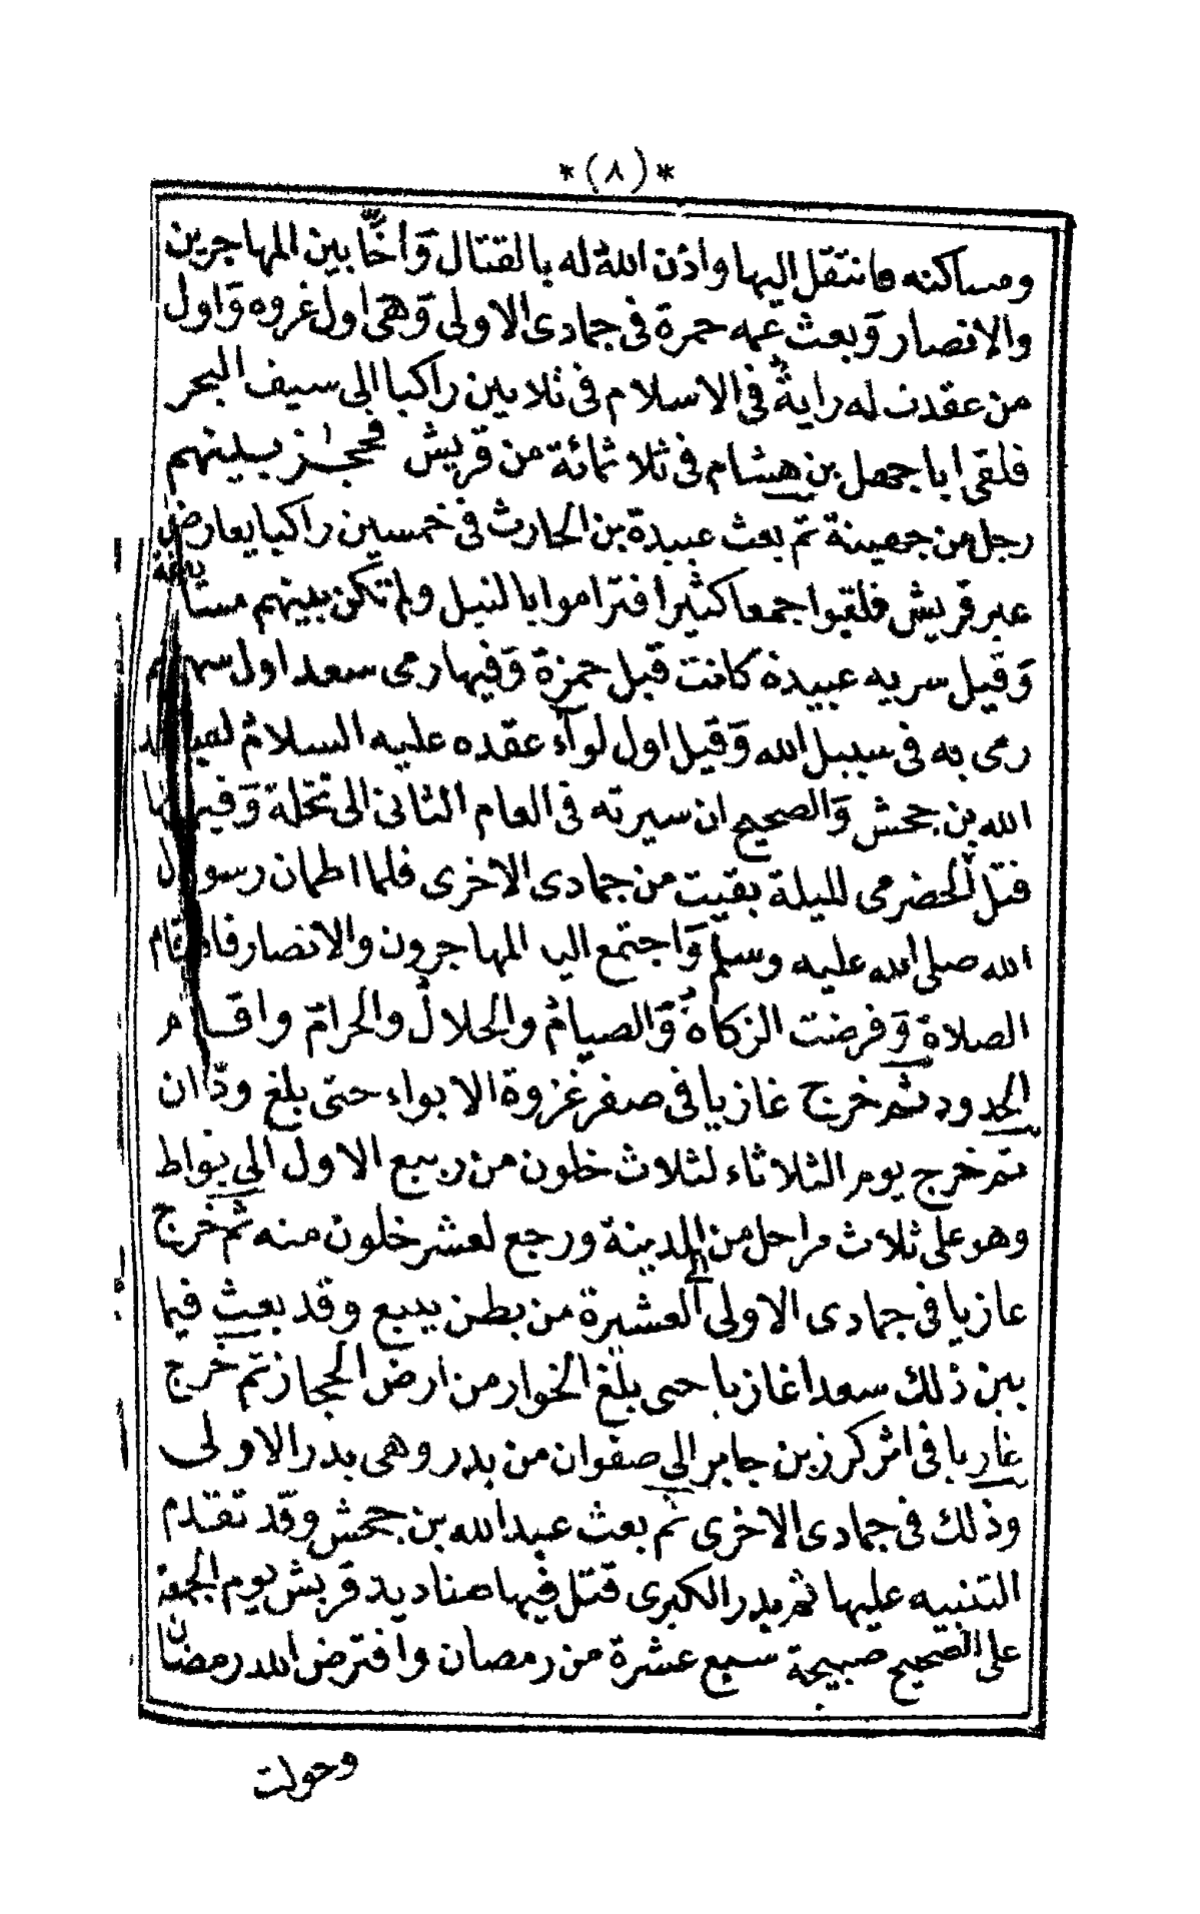 *(٨)*
ومساكنه فانتقل اليها واذن الله له بالقتال وَآخَّا بين المهاجرين
والانصار وَبعث عمه حمزة فى جمادى الاولى وَهى اول غزوه وَاول
من عقدت له راية فى الاسلام فى ثلاثين راكبا الى سيف البحر
فلقى ابا جهل بن هشام فى ثلاثمائة من قريش فحجز بينهم
رجل من جهينة ثم بعث عبيدة بن الحارث فى خمسين راكبا يعارض
عير قريش فلقوا جمعا كثيرا فتراموا بالنبل ولم تكن بينهم مسايفة
وَقيل سريه عبيدة كانت قبل حمزة وَفيها رمى سعد اول سهم
رمى به فى سبيل الله وَقيل اول لوآء عقده عليه السلام لعبد
الله بن جحش وَالصحيح ان سيرته فى العام الثانى الى نخلة وَفيها
قتل الحضرمى لليلة بقيت من جمادى الاخرى فلما اطمان رسول
الله صلى الله عليه وسلم وَاجتمع اليه المهاجرون والانصار فاقام
الصلاة وَفرضت الزكاه وَالصيام والحلال والحرام واقام
الحدود ثم خرج غازيا فى صفر غزوة الابواء حتى بلغ ودّان
ثم خرج يوم الثلاثاء لثلاث خلون من ربيع الاول الى بواط
وهو على ثلاث مراحل من المدينة ورجع لعشر خلون منه ثم خرج
غازيا فى جمادى الاولى الى العشيرة من بطن ينبع وقد بعث فيما
بين ذلك سعدا غازيا حتى بلغ الخوار من ارض الحجاز ثم خرج
غازيا فى اثر كرز بن جابر الى صفوان من بدر وهى بدر الاولى
وذلك فى جمادى الاخرى ثم بعث عبد الله بن جحش وقد تقدم
التنبيه عليها ثم بدر الكبرى قتل فيها صناديد قريش يوم الجمعة
على الصحيح صبيحة سبع عشرة من رمضان وافترض الله رمضان
وحولت